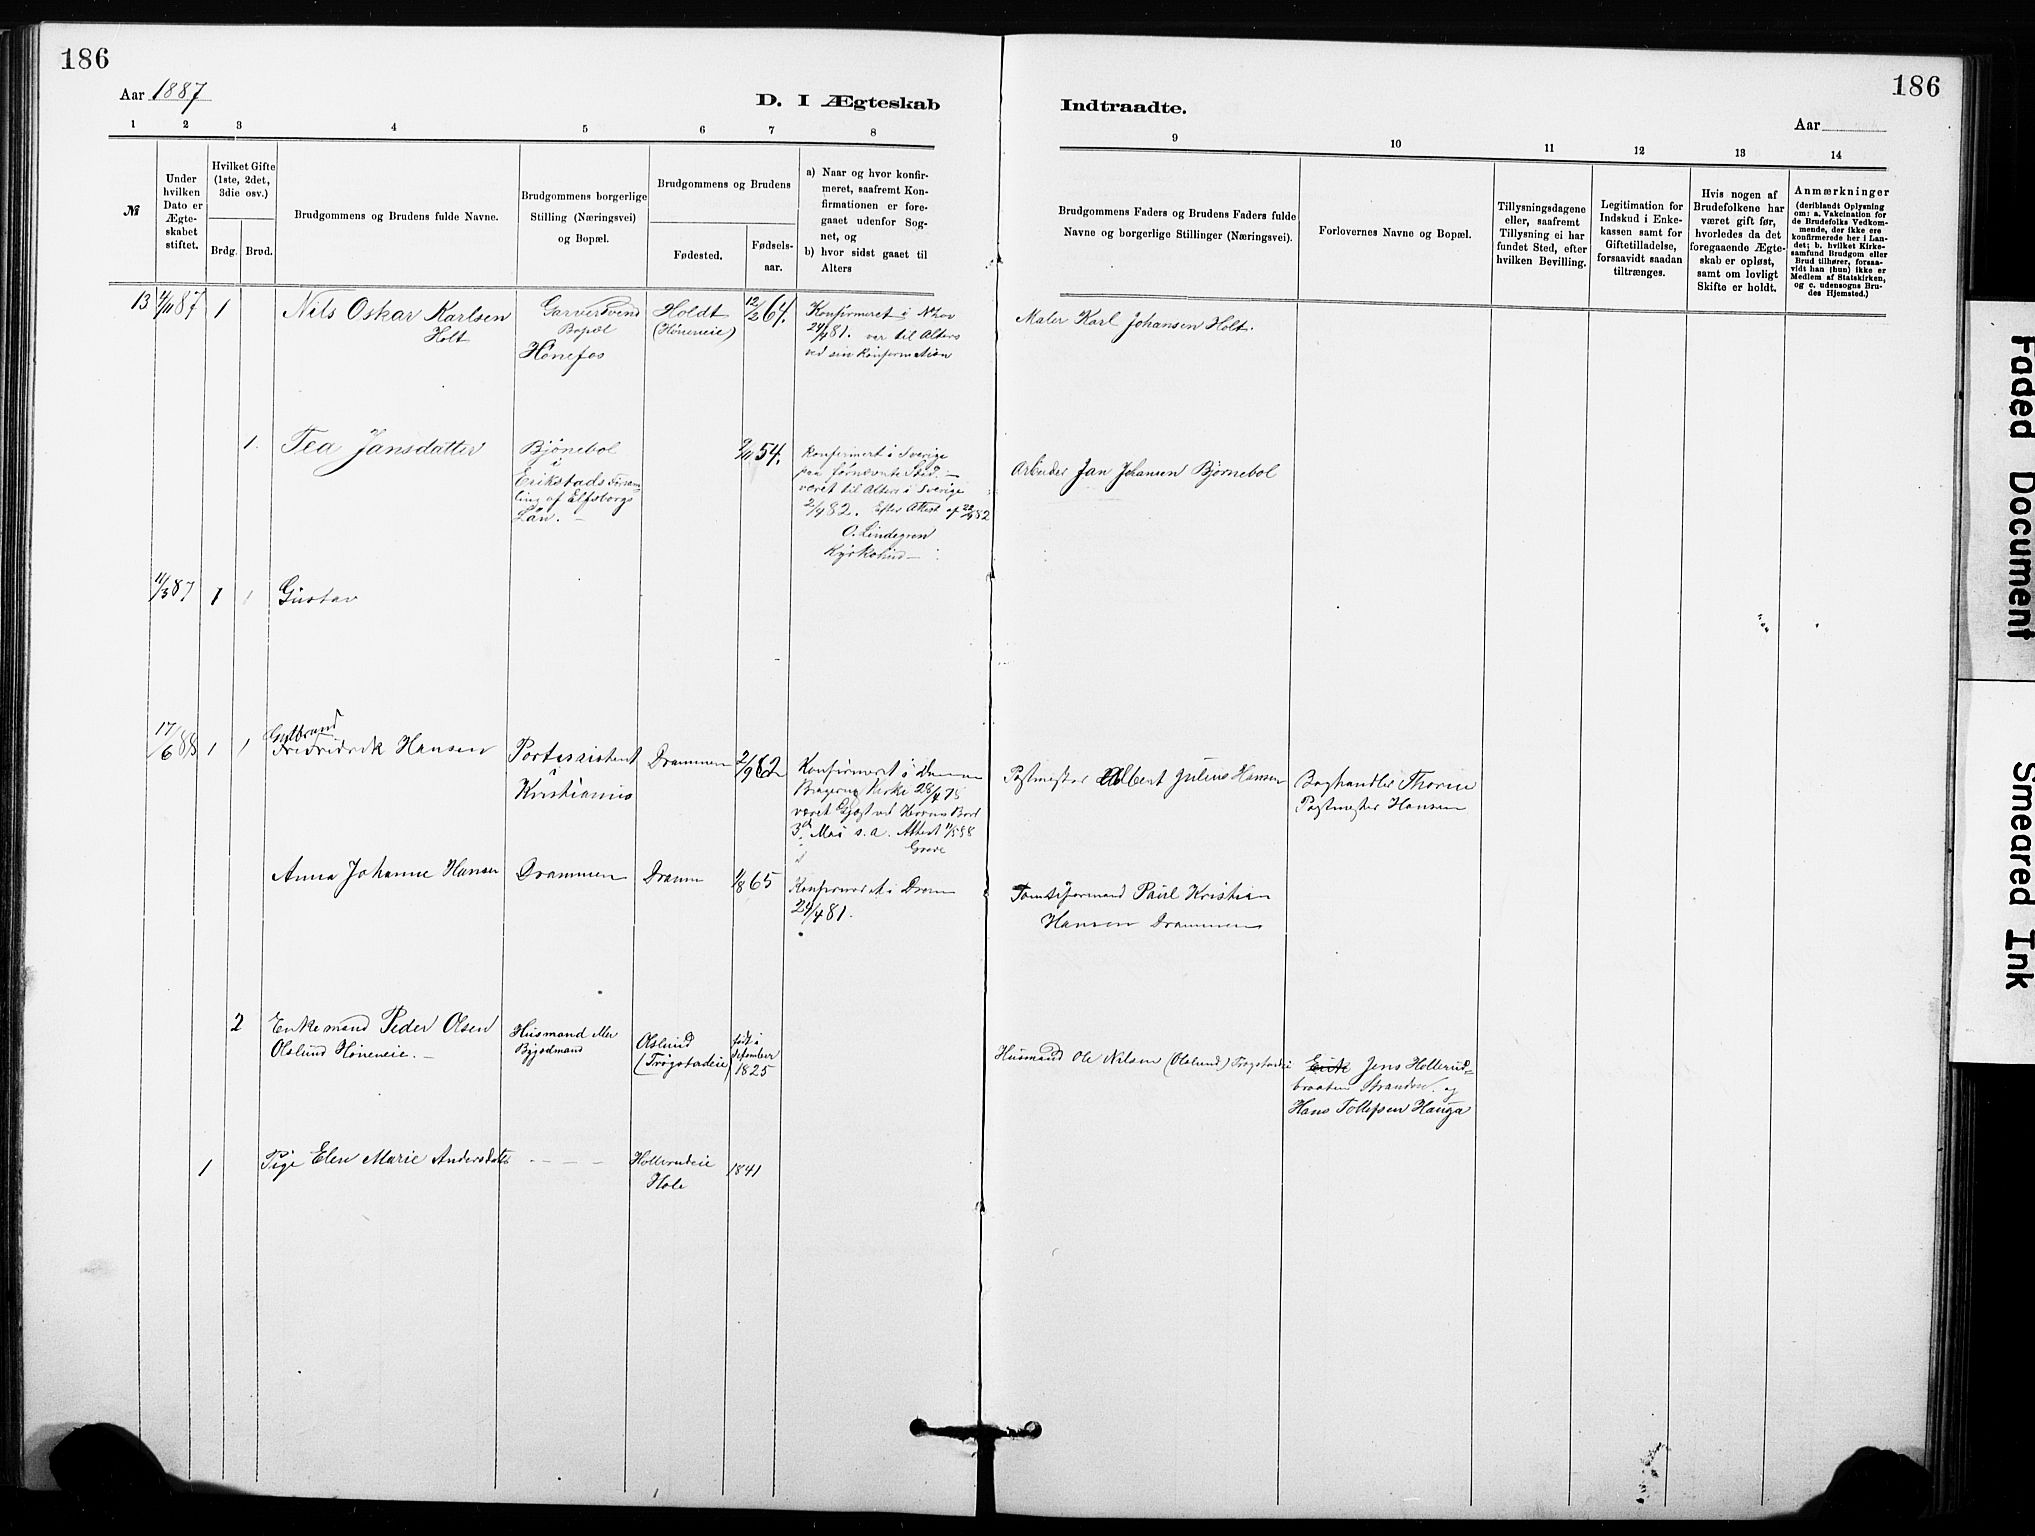 186
186
Aar 1887
D. I Ægteskab
Indtraadte.
Aar
1 2 3 4 5 6 7 8
9 10 11 12 13 14
№
Under
hvilken
Dato er
Ægte-
skabet
stiftet.
Hvilket Gifte
(1ste, 2det,
3die osv.)
Brdg.
Brud.
Brudgommens og Brudens fulde Navne.
Brudgommens borgerlige
Stilling (Næringsvei)
og Bopæl.
Brudgommens og Brudens
Fødested.
Fødsels-
aar.
a) Naar og hvor konfir-
meret, saafremt Kon-
firmationen er fore-
gaaet udenfor Sog-
net, og
b) hvor sidst gaaet til
Alters
Brudgommens Faders og Brudens Faders fulde
Navne og borgerlige Stillinger (Næringsvei).
Forlovernes Navne og Bopæl.
Tillysningsdagene
eller, saafremt
Tillysning ei har
fundet Sted, efter
hvilken Bevilling.
Legitimation for
Indskud i Enke-
kassen samt for
Giftetilladelse,
forsaavidt saadan
tiltrænges.
Hvis nogen af
Brudefolkene har
været gift før,
hvorledes da det
foregaaende Ægte-
skab er opløst,
samt om lovligt
Skifte er holdt.
Anmærkninger
(deriblandt Oplysning
om: a. Vakcination for
de Brudefolks Vedkom-
mende, der ikke ere
konfirmerede her i Lan-
det; b. hvilket Kirke-
samfund Brudgom eller
Brud tilhører, forsaa-
vidt han (hun) ikke er
Medlem af Statskirken,
og c. udensogns Bru-
des Hjemsted.)
13
87
1
Nils Oskar Karlsen
Holt
Garversvend
Bopæl
Hönefos
Holdt
(Höneneie)
12/2 64.
Konfirmeret i
24/4 81. var til Alters
ved sin Konfirmation
Maler Karl Johansen Holt.
1.
Tea Jansdatter
Bjönebol
i
Erikstads Forsam-
ling af Elfsborgs
Län. —
54.
Konfirmert i Sverige
paa fornævnte Sted. —
været til Alters i Sverige
82. Efter Attest af 82
O. Lindegren
Arbeider Jan Johansen Björnebol
11/5 87
1
1
Gustav
17/6 88
1
1
Gulbrand
Fredrik Hansen
Portassistent
i
Kristiania
Drammen
2/9 62
Konfirmeret i
Kirke 28/4 78
været Gjæst ved Herrens Bord
3d Mai s.a. Attest 88
Postmester Albert Julius Hansen
Boghandler
Postmester Hansen
Anna Johanne Hansen
Drammen
Dramn
65
Konfirmeret i Dramn
24/4 81.
Tomteformand Paul Kristian
Hansen Drammen
2
Enkemand Peder Olsen
Olslund Höneneie. —
Husmand eller
Bygselmand
Olslund
(Trögstadeie)
født i
September
1825
Husmand Ole Nilsen (Olslund) Trögstadeie
Jens Hollerud-
braaten Stranden. og
Hans Tollefsen Hauga
1
Pige Elen Marie Andersdatter
— — — —
Hollerudeie
Hole
1841
Faded Document
Smeared Ink